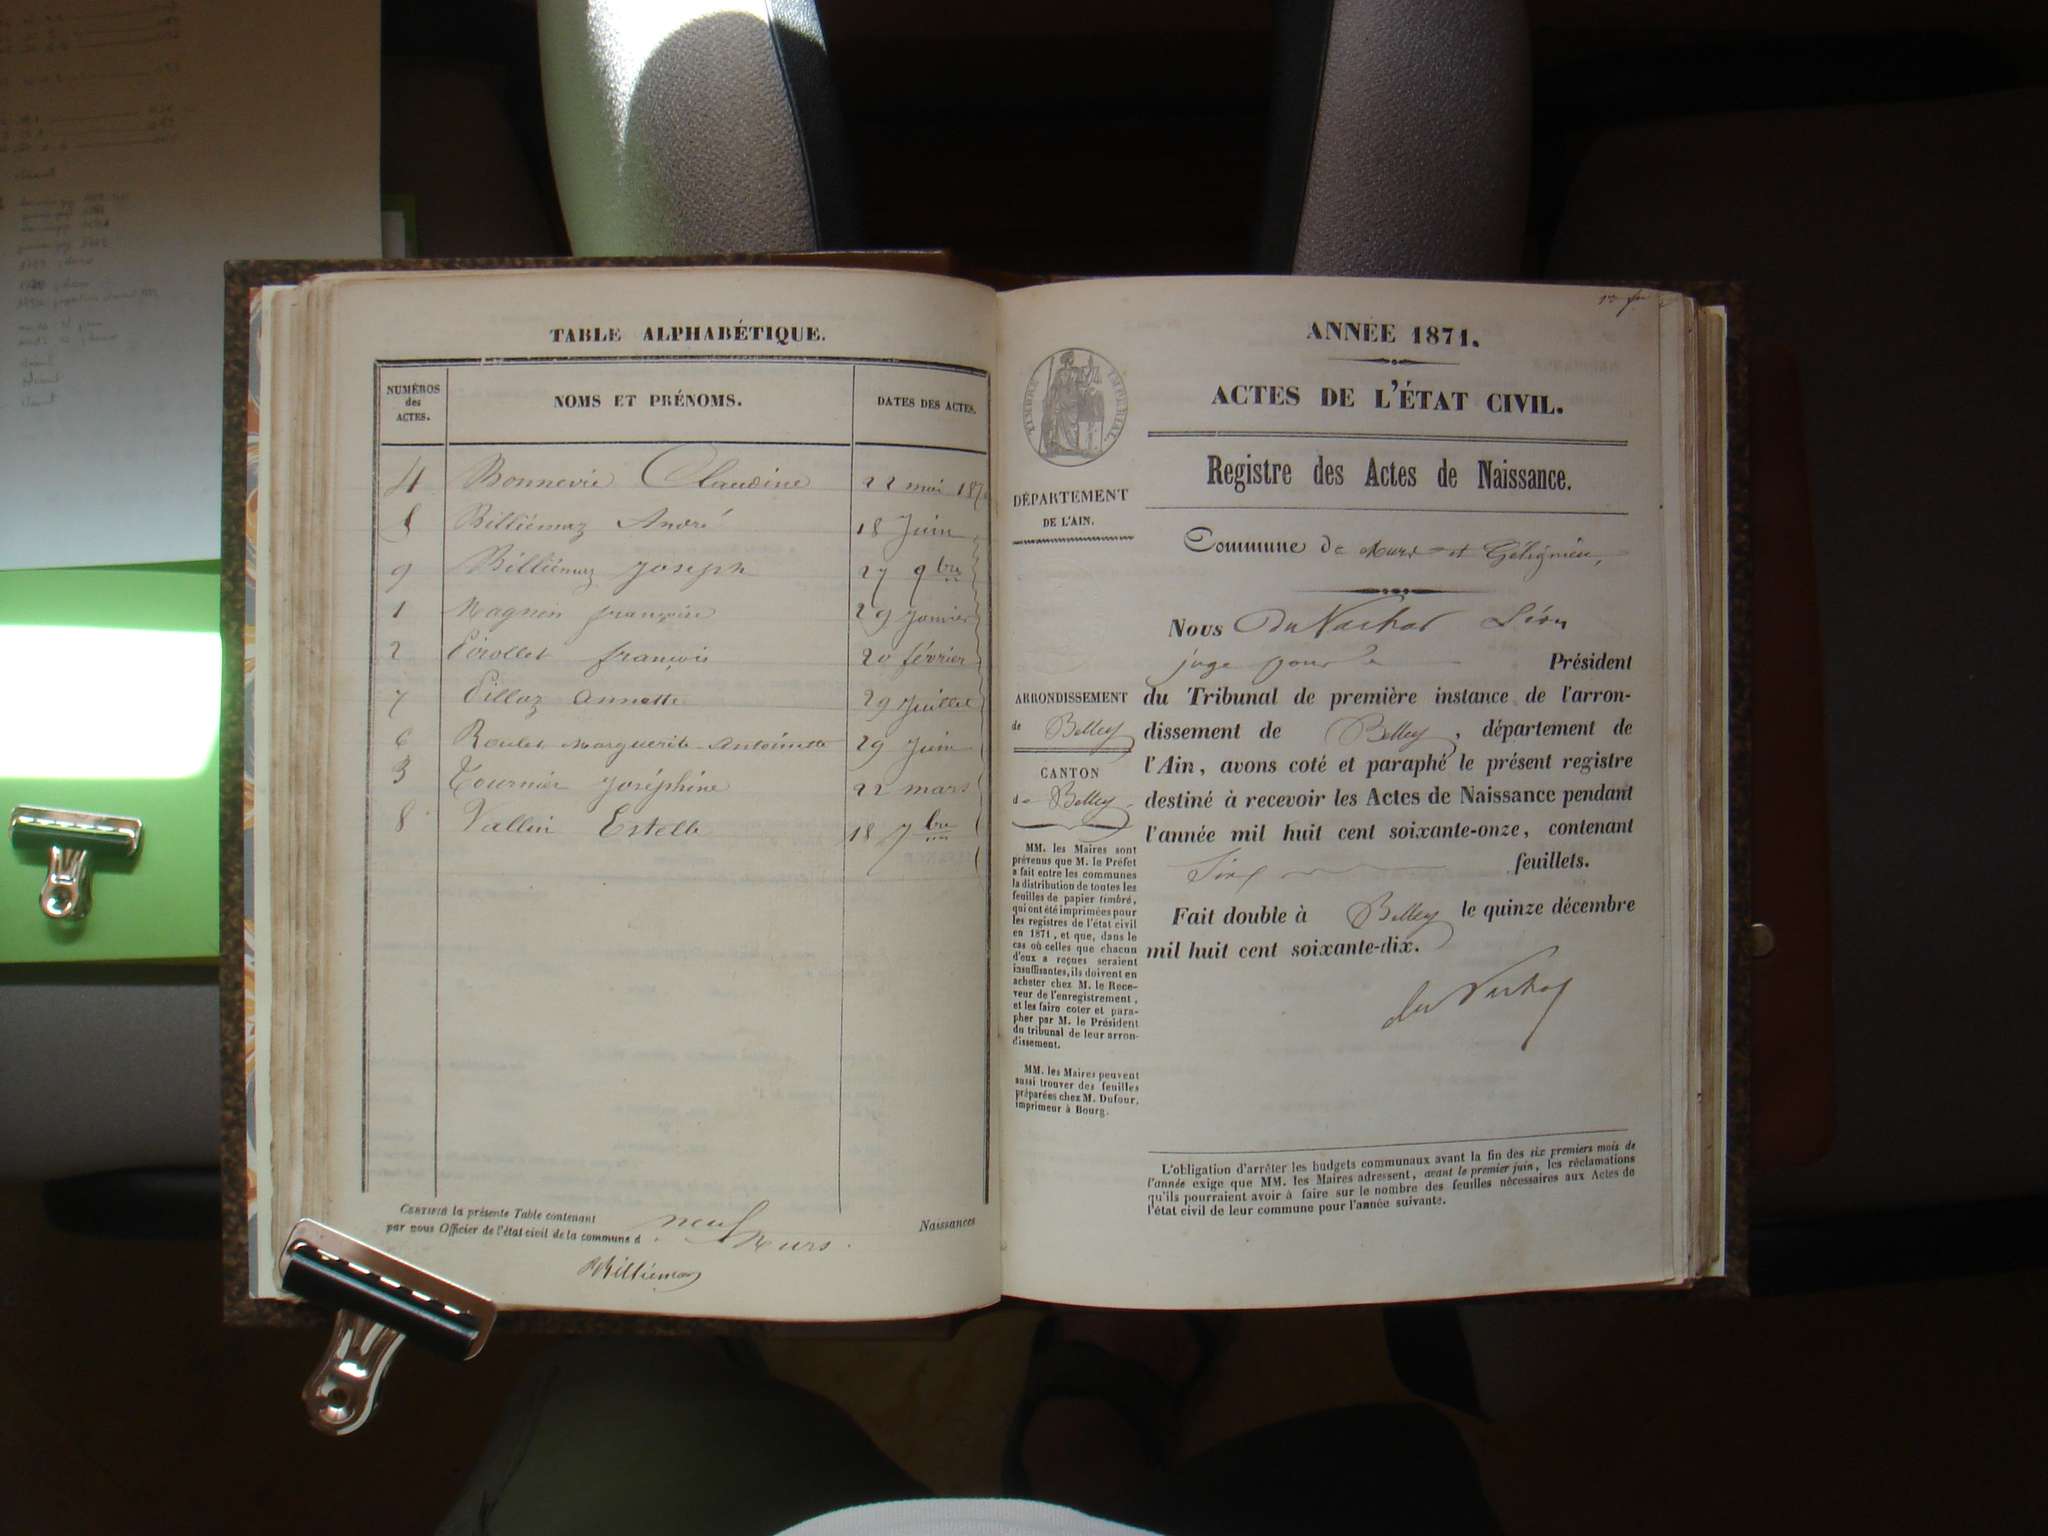 TABLE ALPHABÉTIQUE.
NUMÉROS
des
ACTES.
NOMS ET PRÉNOMS.
DATES DES ACTES.
4 Bonnevie Claudine 22 mai 187
5 Billiémaz André 18 Juin
9 Billiémaz Joseph 27 9bre
1 Magnin françoise 29 Janvier
2 Pirollet françois 20 février
7 Pillaz Annette 29 Juillet
6 Roulet Marguerite Antoinette 29 Juin
3 Tournier Joséphine 22 mars
8 Vallin Estelle 18 7bre
CERTIFIÉ la présente Table contenant neuf Naissances
par nous Officier de l'état civil de la commune d Murs.
Billiemaz
ANNÉE 1871.
ACTES DE L'ÉTAT CIVIL.
TIMBRE IMPÉRIAL
Registre des Actes de Naissance.
DÉPARTEMENT
DE L'AIN.
Commune de Murs et Gélignieu,
Nous du Nachat Léon
juge pour le Président
du Tribunal de première instance de l'arron-
dissement de Belley, département de
l'Ain, avons coté et paraphé le présent registre
destiné à recevoir les Actes de Naissance pendant
l'année mil huit cent soixante-onze, contenant
Six feuillets.
Fait double à Belley le quinze décembre
mil huit cent soixante-dix.
du Nachat
ARRONDISSEMENT
de Belley
CANTON
de Belley
MM. les Maires sont
prévenus que M. le Préfet
a fait entre les communes
la distribution de toutes les
feuilles de papier timbré,
qui ont été imprimées pour
les registres de l'état civil
en 1871, et que, dans le
cas où celles que chacun
d'eux a reçues seraient
insuffisantes, ils doivent en
acheter chez M. le Rece-
veur de l'enregistrement,
et les faire coter et para-
pher par M. le Président
du tribunal de leur arron-
dissement.
MM. les Maires peuvent
aussi trouver des feuilles
préparées chez M. Dufour,
imprimeur à Bourg.
L'obligation d'arrêter les budgets communaux avant la fin des six premiers mois de
l'année exige que MM. les Maires adressent, avant le premier juin, les réclamations
qu'ils pourraient avoir à faire sur le nombre des feuilles nécessaires aux Actes de
l'état civil de leur commune pour l'année suivante.